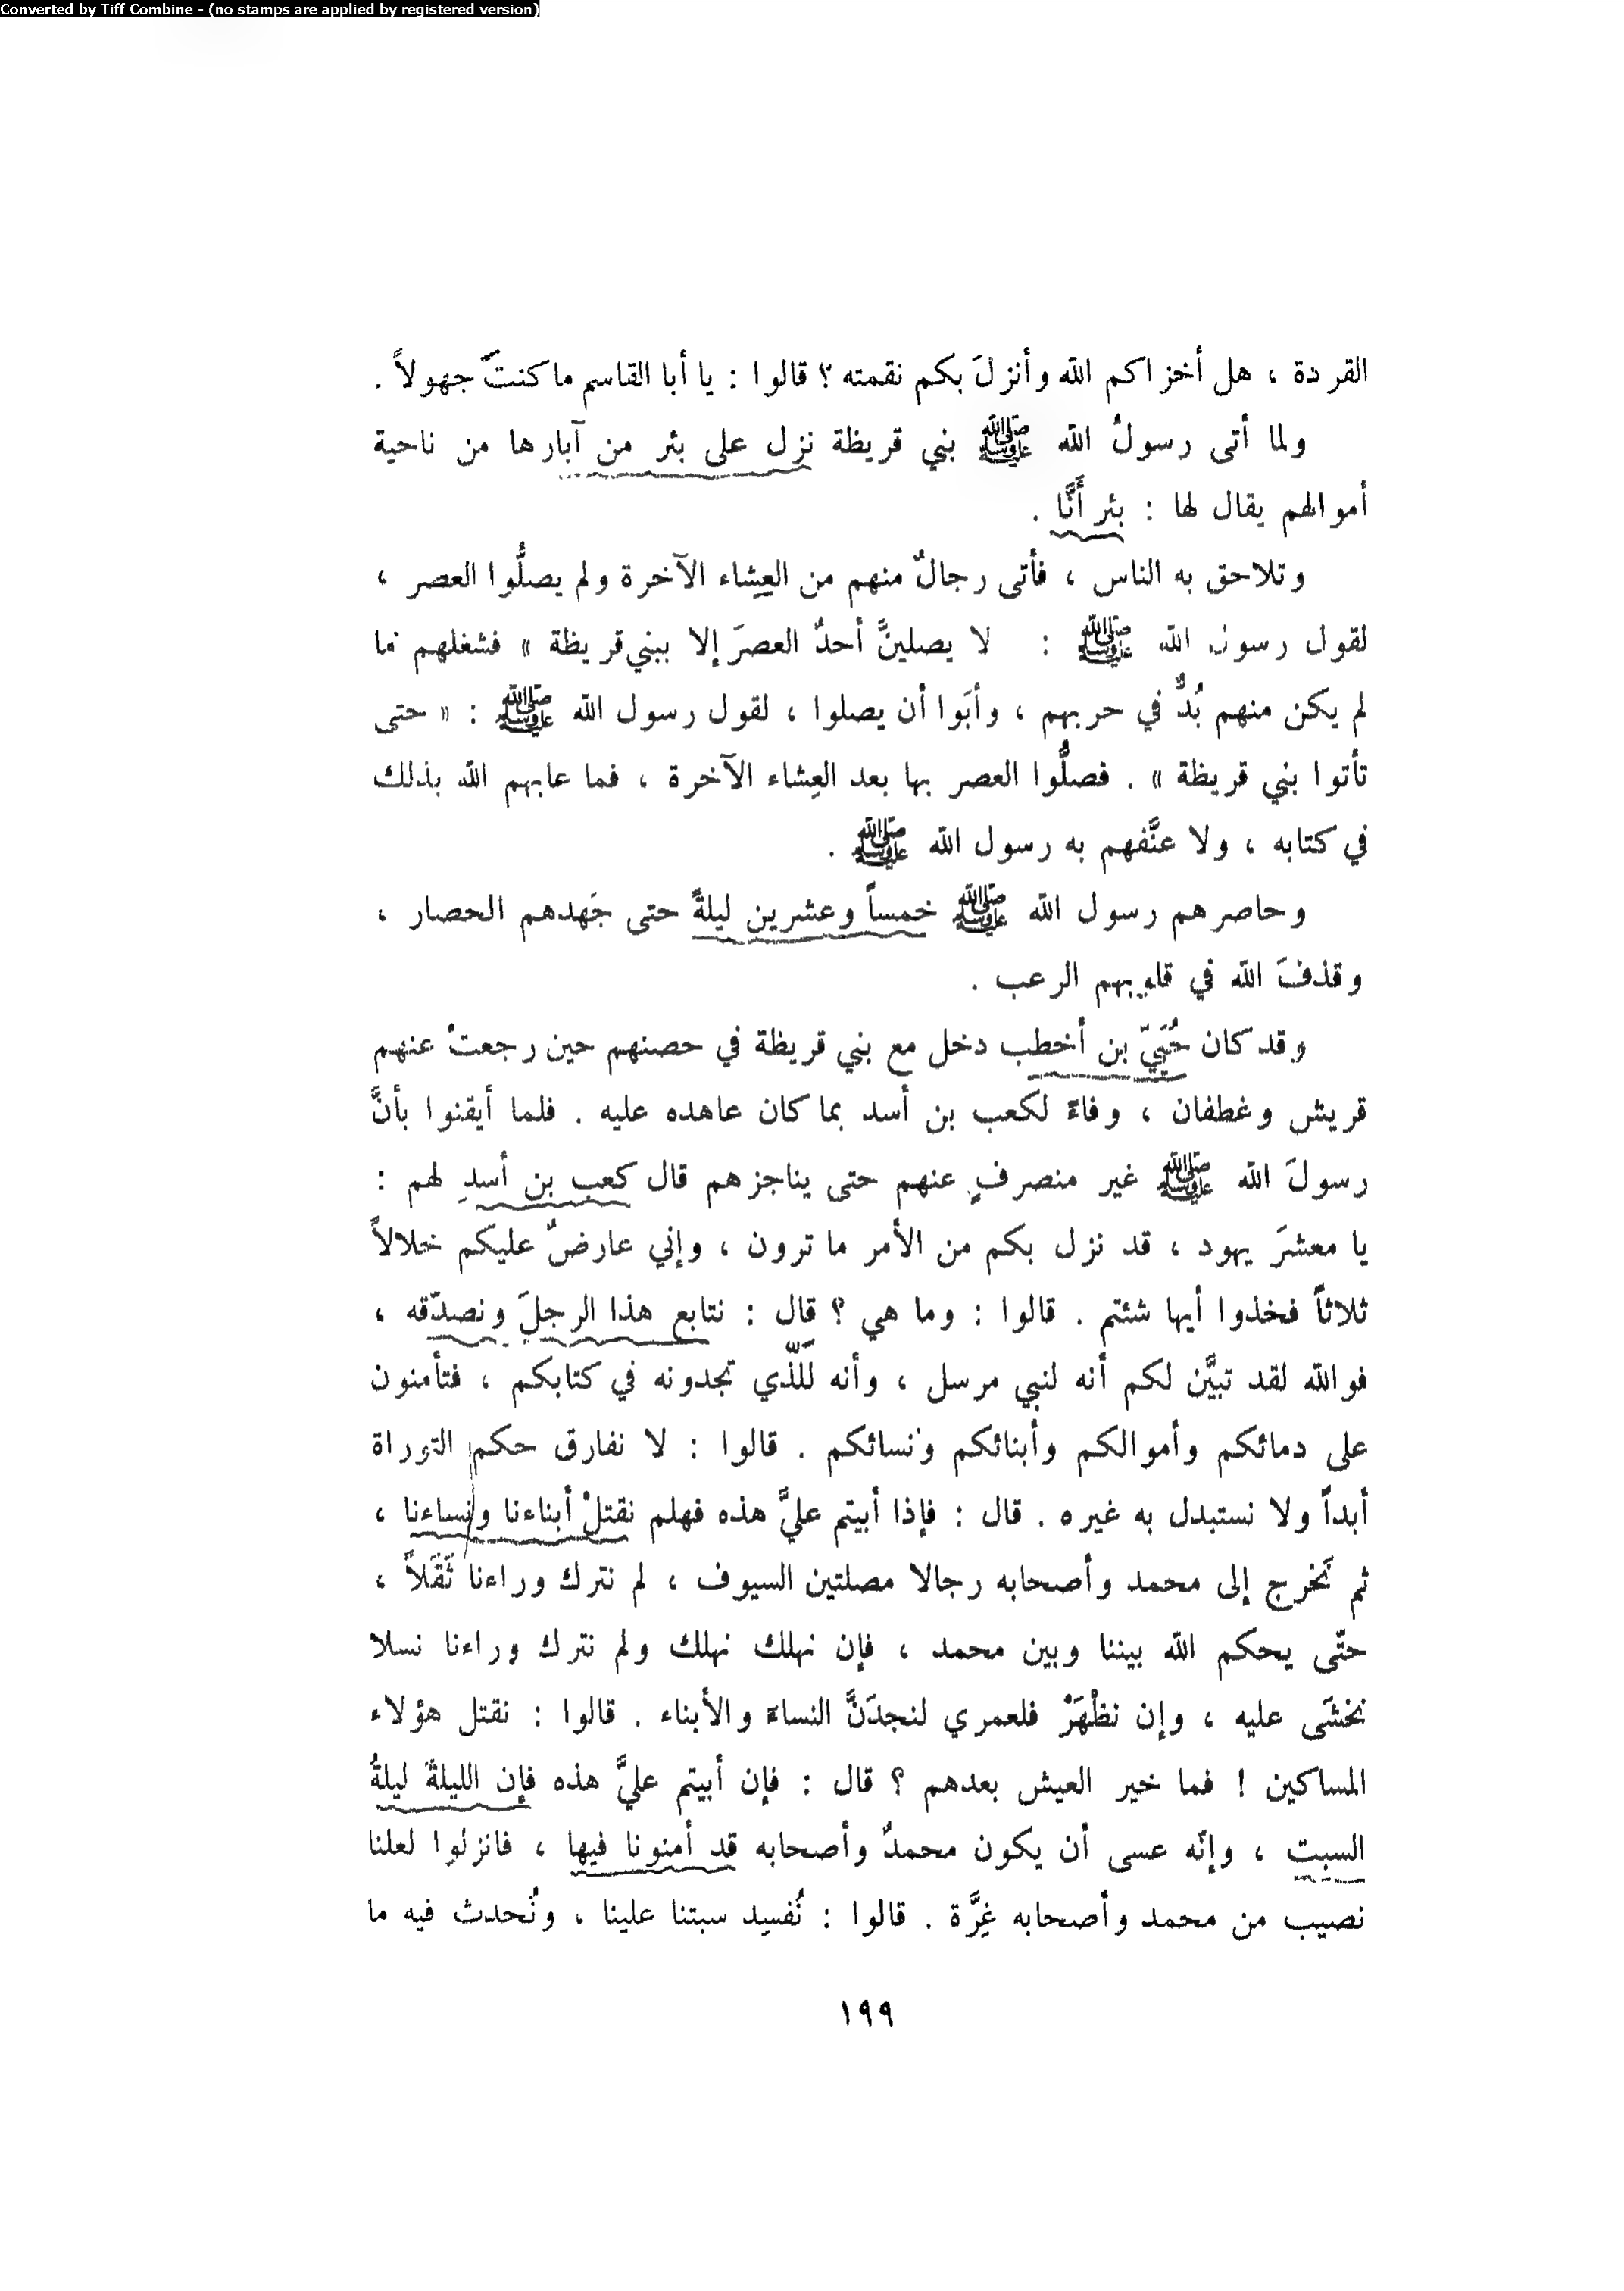 Converted by Tiff Combine - (no stamps are applied by registered version)
القردة ، هل أخزاكم الله وأنزلَ بكم نقمته ؟ قالوا : يا أبا القاسم ما كنتَ جهولاً .
ولما أتى رسولُ الله ﷺ بني قريظة نزل على بئر من آبارها من ناحية
أموالهم يقال لها : بئر أَنَّا .
وتلاحق به الناس ، فأتى رجالٌ منهم من العِشاء الآخرة ولم يصلُّوا العصر ،
لقول رسول الله ﷺ : لا يصلينَّ أحدٌ العصرَ إلا ببني قريظة » فشغلهم ما
لم يكن منهم بُدٌّ في حربهم ، وأبَوا أن يصلوا ، لقول رسول الله ﷺ : « حتى
تأتوا بني قريظة » . فصلُّوا العصر بها بعد العِشاء الآخرة ، فما عابهم الله بذلك
في كتابه ، ولا عنَّفهم به رسول الله ﷺ .
وحاصرهم رسول الله ﷺ خمساً وعشرين ليلةً حتى جَهدهم الحصار ،
وقذفَ الله في قلوبهم الرعب .
وقد كان حُيَيّ بن أخطب دخل مع بني قريظة في حصنهم حين رجعتْ عنهم
قريش وغطفان ، وفاءً لكعب بن أسد بما كان عاهده عليه . فلما أيقنوا بأنَّ
رسولَ الله ﷺ غير منصرفٍ عنهم حتى يناجزهم قال كعب بن أسدِ لهم :
يا معشرَ يهود ، قد نزل بكم من الأمر ما ترون ، وإني عارضٌ عليكم خلالاً
ثلاثاً فخذوا أيها شئتم . قالوا : وما هي ؟ قال : نتابع هذا الرجلَ ونصدّقه ،
فوالله لقد تبيَّن لكم أنه لنبي مرسل ، وأنه لَلّذي تجدونه في كتابكم ، فتأمنون
على دمائكم وأموالكم وأبنائكم ونسائكم . قالوا : لا نفارق حكم التوراة
أبداً ولا نستبدل به غيره . قال : فإذا أبيتم عليَّ هذه فهلم نقتلْ أبناءنا ونساءنا ،
ثم نَخرج إلى محمد وأصحابه رجالا مصلتين السيوف ، لم نترك وراءنا ثَقَلاً ،
حتّى يحكم الله بيننا وبين محمد ، فإن نهلك نهلك ولم نترك وراءنا نسلا
نخشَى عليه ، وإن نظْهَرْ فلعمري لنجدَنَّ النساءَ والأبناء . قالوا : نقتل هؤلاء
المساكين ! فما خير العيش بعدهم ؟ قال : فإن أبيتم عليَّ هذه فإن الليلةَ ليلةُ
السبت ، وإنّه عسى أن يكون محمدٌ وأصحابه قد أمنونا فيها ، فانزلوا لعلنا
نصيب من محمد وأصحابه غِرَّة . قالوا : نُفسِد سبتنا علينا ، ونُحدث فيه ما
١٩٩